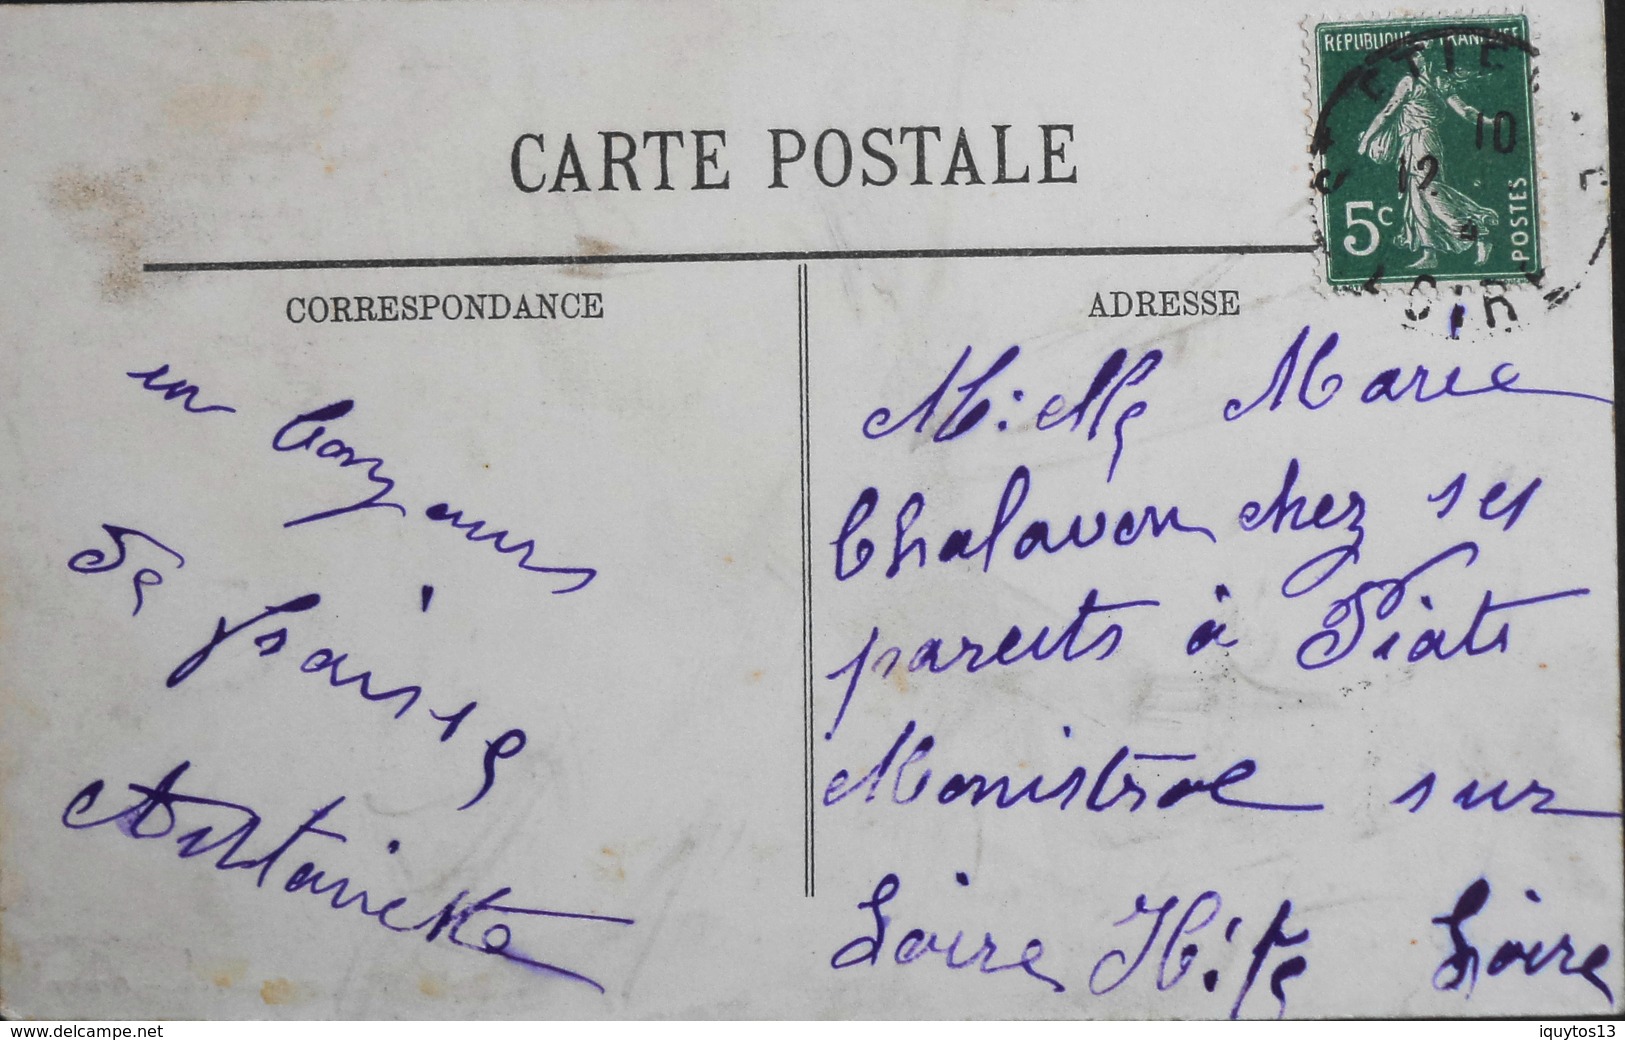 CARTE POSTALE
REPUBLIQUE FRANÇAISE
10
12
5c
POSTES
LOIRE
CORRESPONDANCE
un bonjours
de fraisse
Antoinette
ADRESSE
Mielle Marie
Chalavon chez ses
parents à Piats
Monistrol sur
Loire Hte Loire
www.delcampe.net
iquytos13